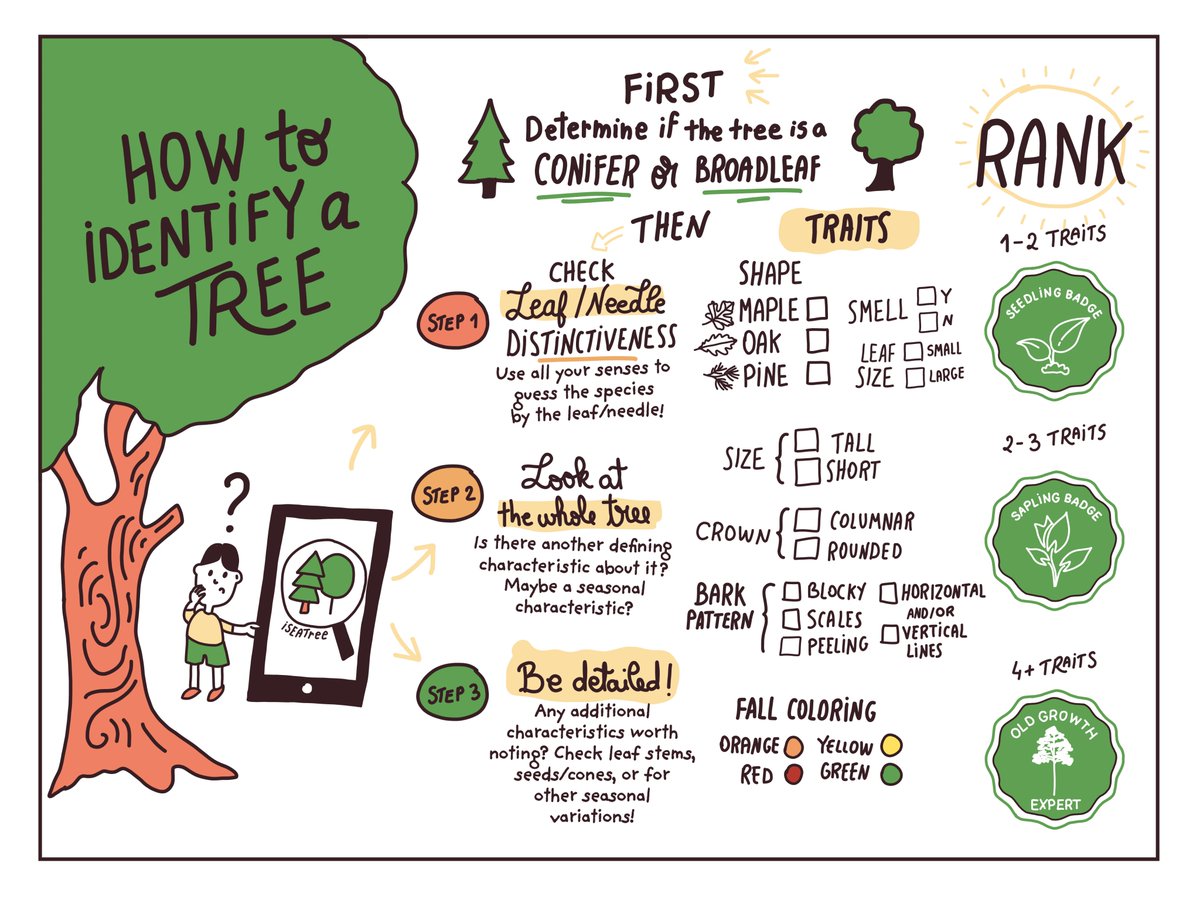 HOW to
iDENTiFY a
TREE
FiRST
Determine if the tree is a
CONiFER or BROADLEAF
THEN
STEP 1
CHECK
Leaf/Needle
DiSTINCTIVENESS
Use all your senses to
guess the species
by the leaf/needle!
STEP 2
Look at
the whole tree
Is there another defining
characteristic about it?
Maybe a seasonal
characteristic?
STEP 3
Be detailed!
Any additional
characteristics worth
noting? Check leaf stems,
seeds/cones, or for
other seasonal
variations!
?
iSEATree
TRAiTS
SHAPE
MAPLE
OAK
PiNE
SMELL
Y
N
LEAF
SIZE
SMALL
LARGE
SIZE
TALL
SHORT
CROWN
COLUMNAR
ROUNDED
BARK
PATTERN
BLOCKY
SCALES
PEELiNG
HORIZONTAL
AND/OR
VERTICAL
LiNES
FALL COLORiNG
ORANGE
YELLOW
RED
GREEN
RANK
1-2 TRAiTS
SEEDLiNG BADGE
2-3 TRAiTS
SAPLiNG BADGE
4+ TRAiTS
OLD GROWTH
EXPERT